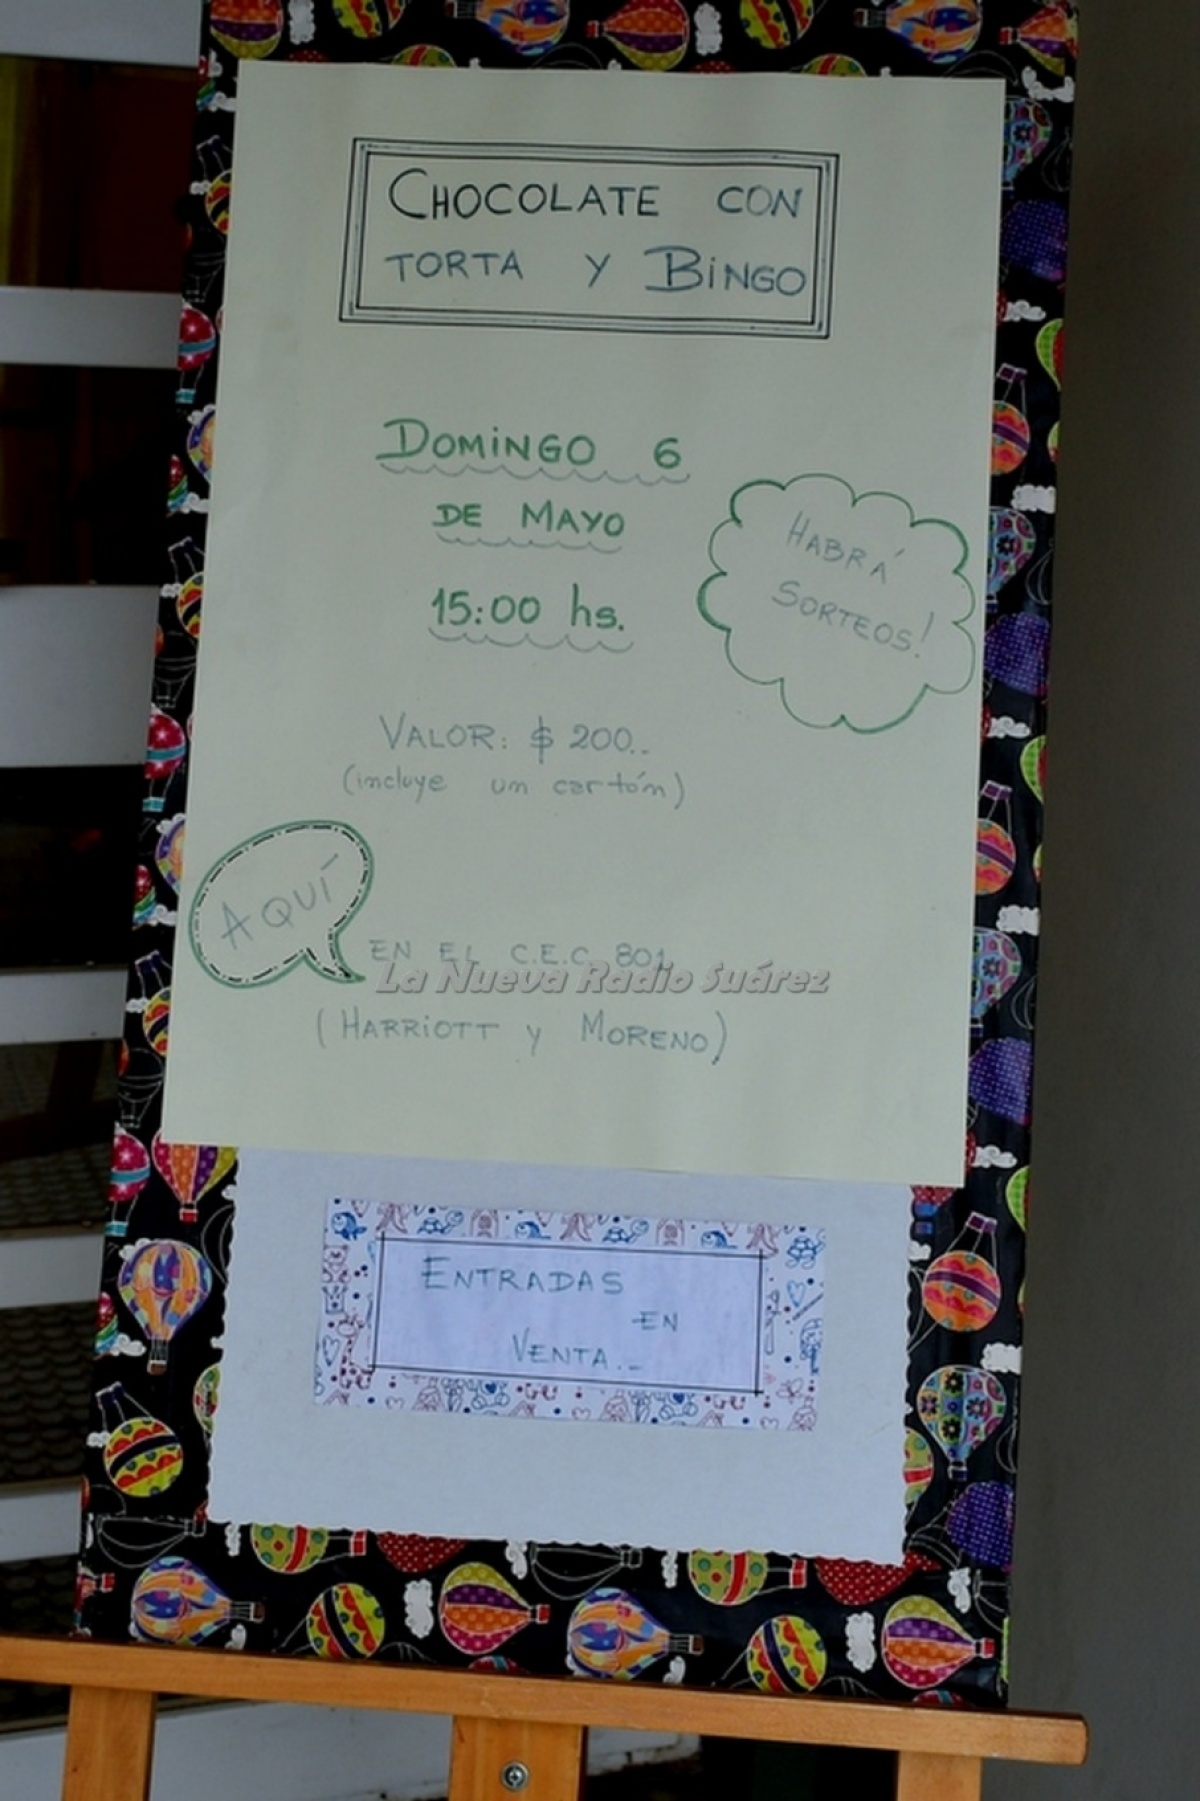 CHOCOLATE CON
TORTA Y BINGO
DOMINGO 6
DE MAYO
15:00 hs.
HABRÁ
SORTEOS!
VALOR: $ 200..
(incluye un cartón)
AQUÍ
EN EL C.E.C. 801
La Nueva Radio Suárez
(HARRIOTT y MORENO)
ENTRADAS
EN
VENTA._